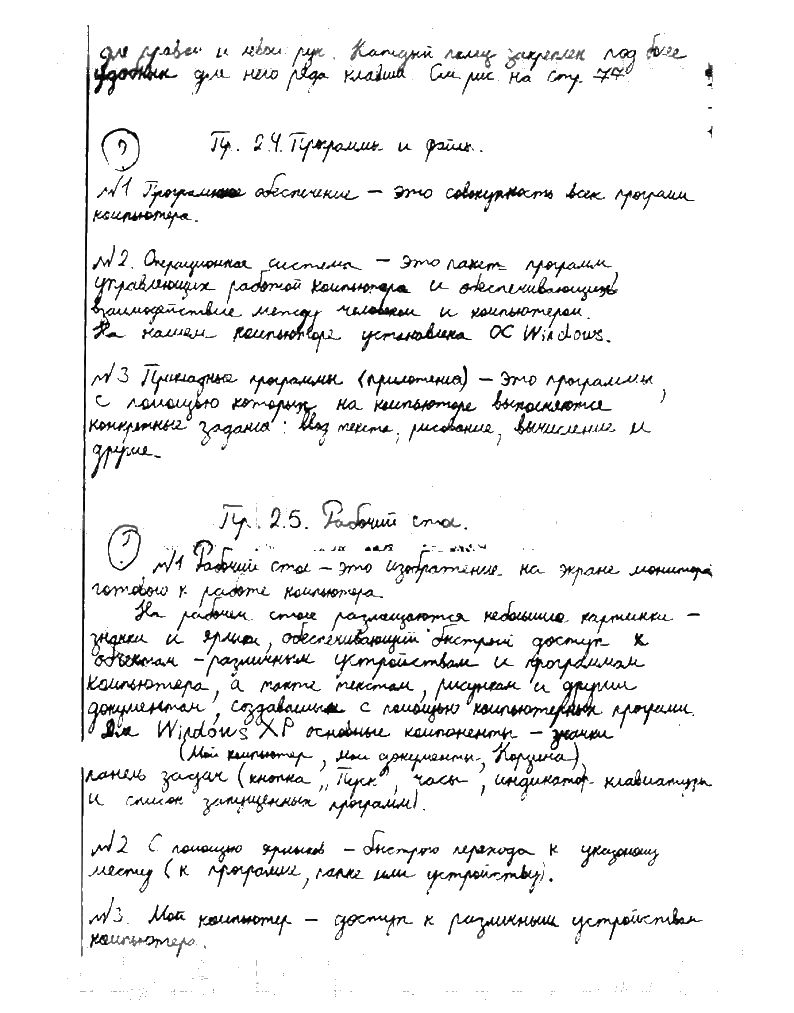 для правой и левой рук. Каждый палец закреплен под более
удобным для него ряда клавиш. См рис. на стр. 77
? Пр. 2.4. Программы и файлы.
№1 Программное обеспечение – это совокупность всех программ
компьютера.
№2. Операционная система – это пакет программ,
управляющих работой компьютера и обеспечивающих
взаимодействие между человеком и компьютером.
На нашем компьютере установлена ОС Windows.
№3 Прикладные программы (приложения) – это программы,
с помощью которых на компьютере выполняются
конкретные задания: ввод текста, рисование, вычисление и
другие.
Пр. 2.5. Рабочий стол.
?
№1 Рабочий стол – это изображение на экране монитора
готового к работе компьютера.
На рабочем столе размещаются небольшие картинки –
значки и ярлыки, обеспечивающий быстрый доступ к
объектам – различным устройствам и программам
компьютера, а также текстам, рисункам и другим
документам, создаваемым с помощью компьютерных программ.
Для Windows XP основные компоненты – значки
(Мой компьютер, мои документы, Корзина),
панель задач (кнопка „Пуск", часы, индикатор клавиатуры
и список запущенных программ).
№2 С помощью ярлыков – быстрого перехода к указанному
месту (к программе, папке или устройству).
№3. Мой компьютер – доступ к различным устройствам
компьютера.